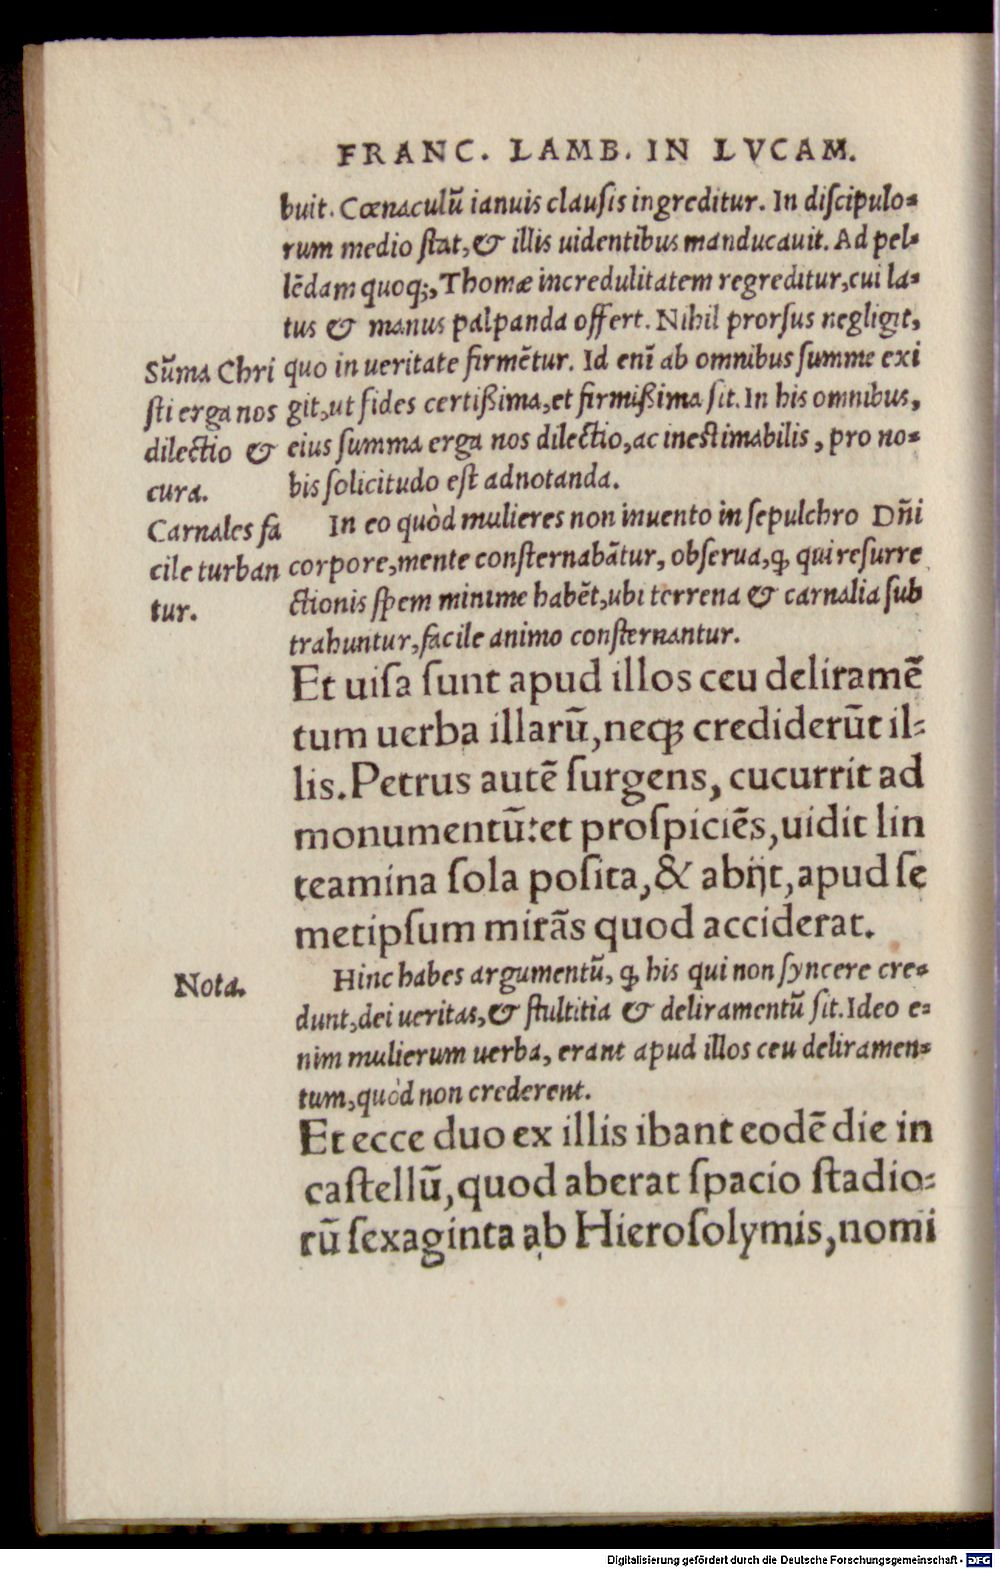 FRANC. LAMB. IN LVCAM.
buit. Cœnaculũ ianuis clausis ingreditur. In discipulo-
rum medio stat, & illis uidentibus manducauit. Ad pel-
lẽdam quoq;, Thomæ incredulitatem regreditur, cui la-
tus & manus palpanda offert. Nihil prorsus negligit,
quo in ueritate firmẽtur. Id enĩ ab omnibus summe exi
git, ut fides certißima, et firmißima sit. In his omnibus,
eius summa erga nos dilectio, ac inestimabilis, pro no-
bis solicitudo est adnotanda.
Sũma Chri
sti erga nos
dilectio &
cura.
In eo quòd mulieres non inuento in sepulchro Dñi
corpore, mente consternabãtur, obserua, ꝙ qui resurre
ctionis spem minime habẽt, ubi terrena & carnalia sub
trahuntur, facile animo consternantur.
Carnales fa
cile turban
tur.
Et uisa sunt apud illos ceu deliramẽ
tum uerba illarũ, neqꝫ crediderũt il-
lis. Petrus autẽ surgens, cucurrit ad
monumentũ: et prospiciẽs, uidit lin
teamina sola posita, & abijt, apud se
metipsum mirãs quod acciderat.
Hinc habes argumentũ, ꝙ his qui non syncere cre-
dunt, dei ueritas, & stultitia & deliramentũ sit. Ideo e-
nim mulierum uerba, erant apud illos ceu deliramen-
tum, quòd non crederent.
Nota.
Et ecce duo ex illis ibant eodẽ die in
castellũ, quod aberat spacio stadio-
rũ sexaginta ab Hierosolymis, nomi
Digitalisierung gefördert durch die Deutsche Forschungsgemeinschaft - DFG